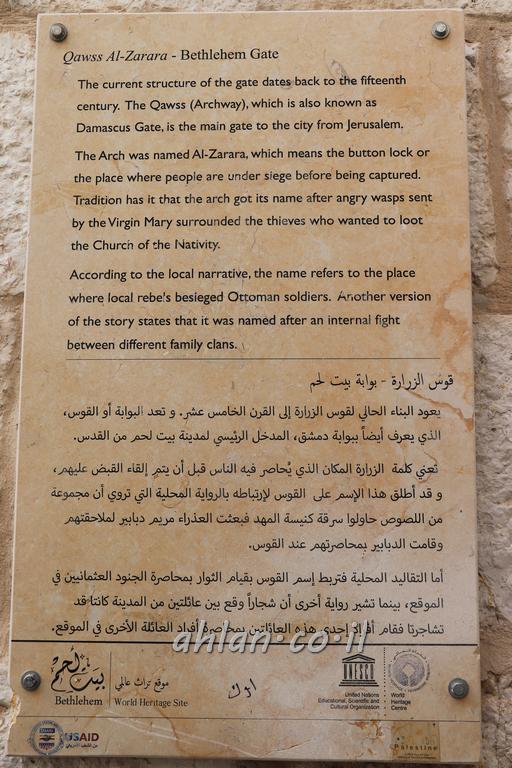 Qawss Al-Zarara - Bethlehem Gate
The current structure of the gate dates back to the fifteenth
century. The Qawss (Archway), which is also known as
Damascus Gate, is the main gate to the city from Jerusalem.
The Arch was named Al-Zarara, which means the button lock or
the place where people are under siege before being captured.
Tradition has it that the arch got its name after angry wasps sent
by the Virgin Mary surrounded the thieves who wanted to loot
the Church of the Nativity.
According to the local narrative, the name refers to the place
where local rebe's besieged Ottoman soldiers. Another version
of the story states that it was named after an internal fight
between different family clans.
قوس الزرارة - بوابة بيت لحم
يعود البناء الحالي لقوس الزرارة إلى القرن الخامس عشر. و تعد البوابة أو القوس،
الذي يعرف أيضاً ببوابة دمشق، المدخل الرئيسي لمدينة بيت لحم من القدس.
تعني كلمة الزرارة المكان الذي يُحاصر فيه الناس قبل أن يتم إلقاء القبض عليهم،
و قد أطلق هذا الإسم على القوس لإرتباطه بالرواية المحلية التي تروي أن مجموعة
من اللصوص حاولوا سرقة كنيسة المهد فبعثت العذراء مريم دبابير لملاحقتهم
وقامت الدبابير بمحاصرتهم عند القوس.
أما التقاليد المحلية فتربط إسم القوس بقيام الثوار بمحاصرة الجنود العثمانيين في
الموقع، بينما تشير رواية أخرى أن شجاراً وقع بين عائلتين من المدينة كانتا قد
تشاجرتا فقام أفراد إحدى هذه العائلتين بمحاصرة أفراد العائلة الأخرى في الموقع.
ahlan.co.il
بيت لحم
Bethlehem
موقع تراث عالمي
World Heritage Site
UNESCO
United Nations
Educational, Scientific and
Cultural Organization
World
Heritage
Centre
USAID
من الشعب الأمريكي
Palestine